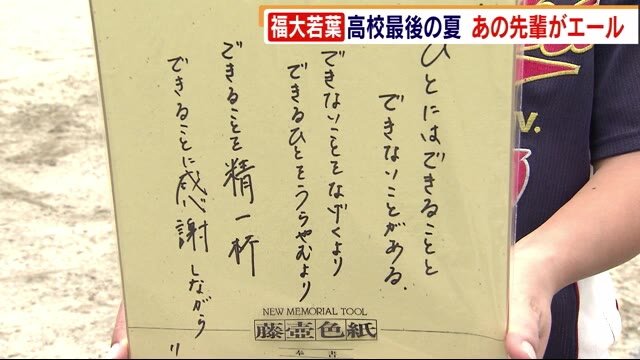 福大若葉 高校最後の夏 あの先輩がエール
ひとにはできることと
できないことがある.
できないことをなげくより
できるひとをうらやむより
できることを精一杯
できることに感謝しながら
NEW MEMORIAL TOOL
藤壷色紙
奉書
V.